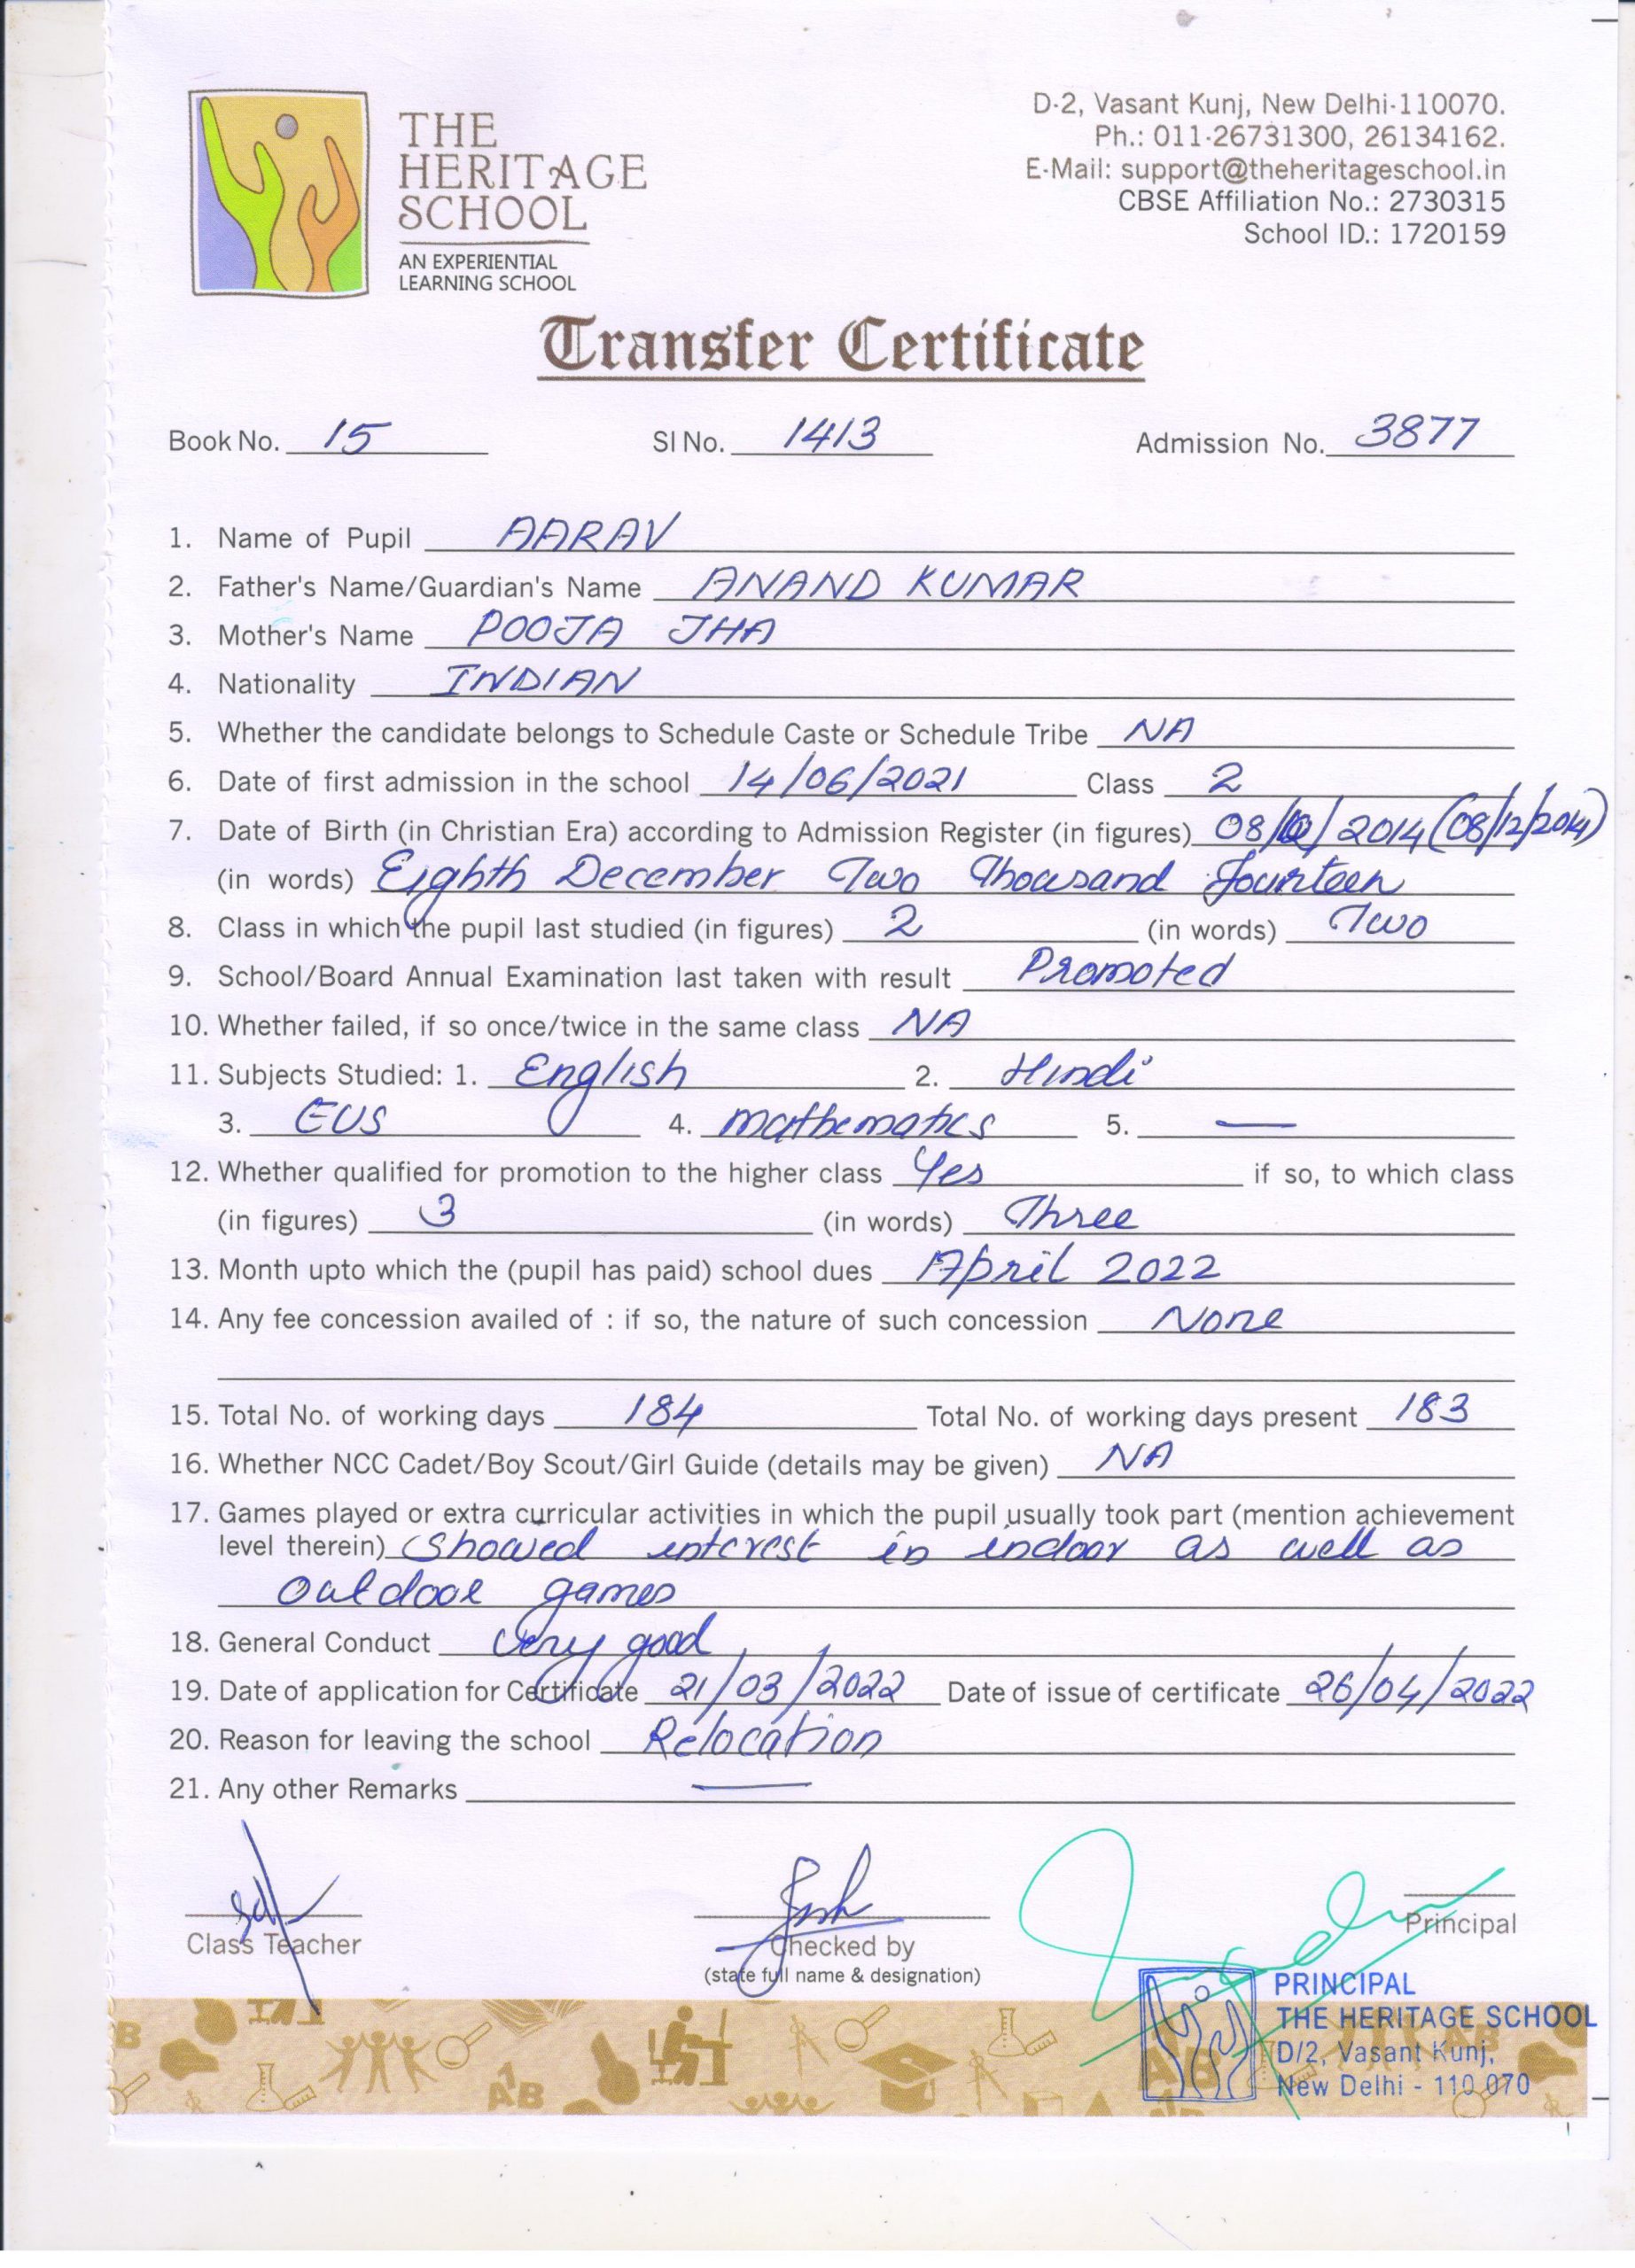 THE
HERITAGE
SCHOOL
AN EXPERIENTIAL
LEARNING SCHOOL
D-2, Vasant Kunj, New Delhi-110070.
Ph.: 011-26731300, 26134162.
E-Mail: support@theheritageschool.in
CBSE Affiliation No.: 2730315
School ID.: 1720159
Transfer Certificate
Book No. 15 Sl No. 1413 Admission No. 3877
1. Name of Pupil AARAV
2. Father's Name/Guardian's Name ANAND KUMAR
3. Mother's Name POOJA JHA
4. Nationality INDIAN
5. Whether the candidate belongs to Schedule Caste or Schedule Tribe NA
6. Date of first admission in the school 14/06/2021 Class 2
7. Date of Birth (in Christian Era) according to Admission Register (in figures) 08/12/2014 (08/12/2014)
(in words) Eighth December Two Thousand Fourteen
8. Class in which the pupil last studied (in figures) 2 (in words) Two
9. School/Board Annual Examination last taken with result Promoted
10. Whether failed, if so once/twice in the same class NA
11. Subjects Studied: 1. English 2. Hindi
3. EVS 4. mathematics 5. —
12. Whether qualified for promotion to the higher class Yes if so, to which class
(in figures) 3 (in words) Three
13. Month upto which the (pupil has paid) school dues April 2022
14. Any fee concession availed of : if so, the nature of such concession None
15. Total No. of working days 184 Total No. of working days present 183
16. Whether NCC Cadet/Boy Scout/Girl Guide (details may be given) NA
17. Games played or extra curricular activities in which the pupil usually took part (mention achievement
level therein) Showed interest in indoor as well as
outdoor games
18. General Conduct Very good
19. Date of application for Certificate 21/03/2022 Date of issue of certificate 26/04/2022
20. Reason for leaving the school Relocation
21. Any other Remarks —
Class Teacher
Checked by
(state full name & designation)
Principal
PRINCIPAL
THE HERITAGE SCHOOL
D/2, Vasant Kunj,
New Delhi - 110 070